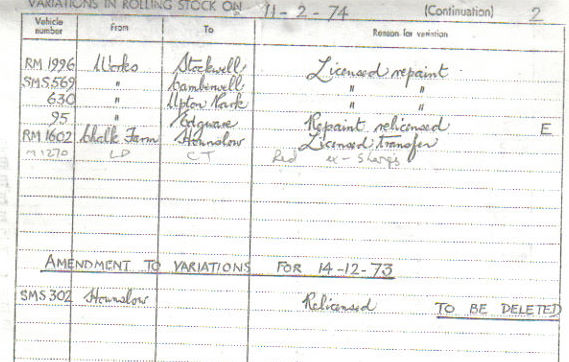 VARIATIONS IN ROLLING STOCK ON 11-2-74 (Continuation) 2
Vehicle number From To Reason for variation
RM 1996 Works Stockwell Licensed repaint
SMS 569 " Camberwell " "
630 " Upton Park " "
95 " Edgware Repaint relicensed E
RM 1602 Chalk Farm Hounslow Licensed transfer
M1270 LD CT Red ex-Sharp's
AMENDMENT TO VARIATIONS FOR 14-12-73
SMS 302 Hounslow Relicensed TO BE DELETED